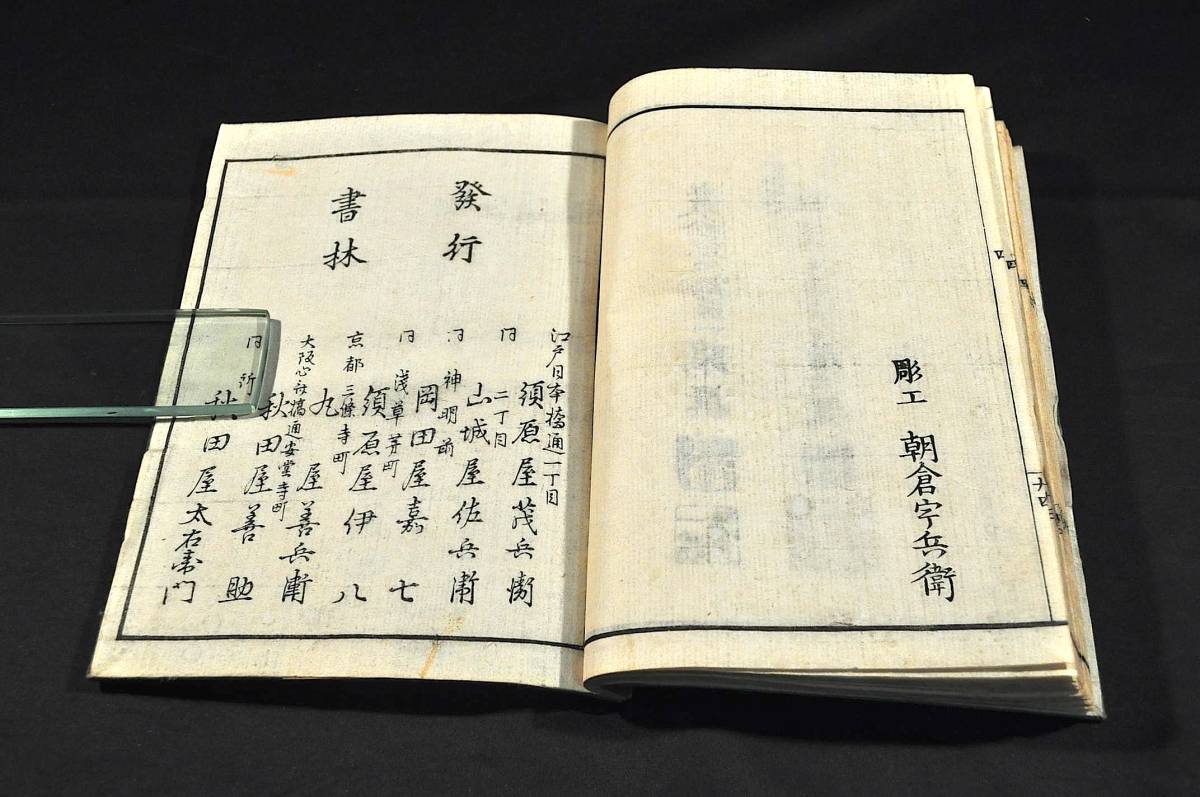 彫工 朝倉宇兵衛
十四
發行
書林
江戸日本橋通一丁目
須原屋茂兵衛
同 二丁目
山城屋佐兵衛
同 神明前
岡田屋嘉七
同 淺草茅町
須原屋伊八
京都三條寺町
丸屋善兵衛
大阪心斎橋通安堂寺町
秋田屋善助
同所
秋田屋太右衛門